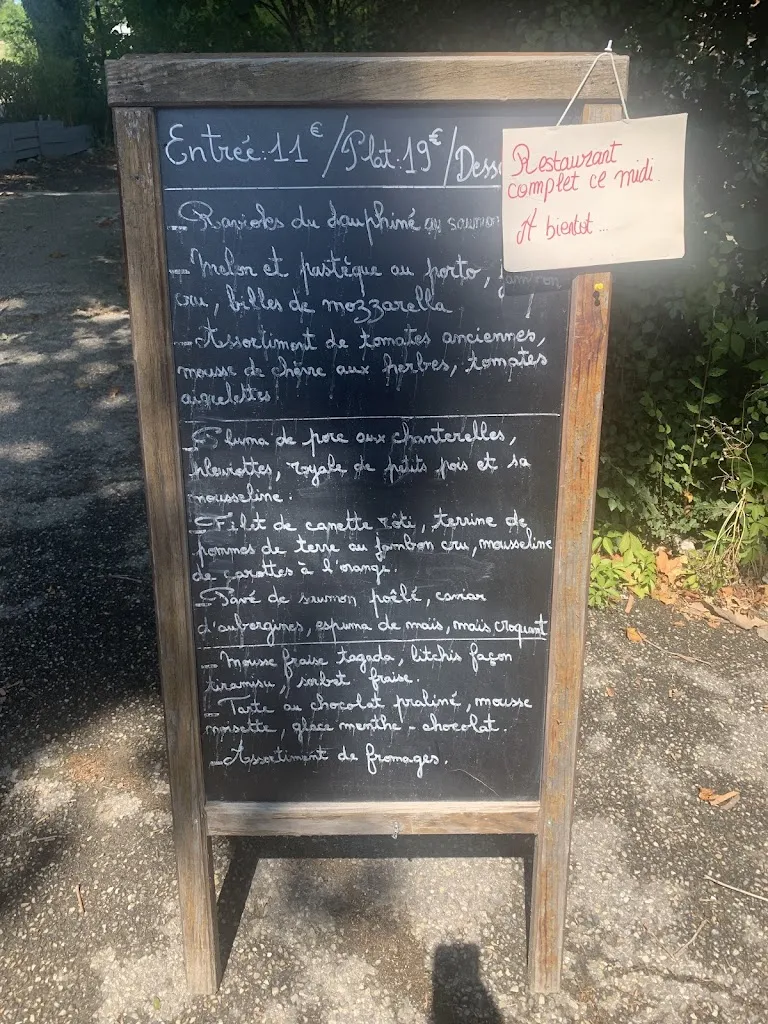 Entrée:11€/Plat:19€/Dess
Restaurant
complet ce midi.
A bientot...
- Ravioles du dauphiné au saumon
- Melon et pastèque au porto, jambon
cru, billes de mozzarella
- Assortiment de tomates anciennes,
mousse de chèvre aux herbes, tomates
aigrelettes
- Pluma de porc aux chanterelles,
pleurottes, royale de petits pois et sa
mousseline.
- Filet de canette rôti, terrine de
pommes de terre au jambon cru, mousseline
de carottes à l'orange.
- Pavé de saumon poêlé, caviar
d'aubergines, espuma de maïs, maïs croquant
- Mousse fraise tagada, litchis façon
tiramisu, sorbet fraise.
- Tarte au chocolat praliné, mousse
noisette, glace menthe-chocolat.
- Assortiment de fromages.